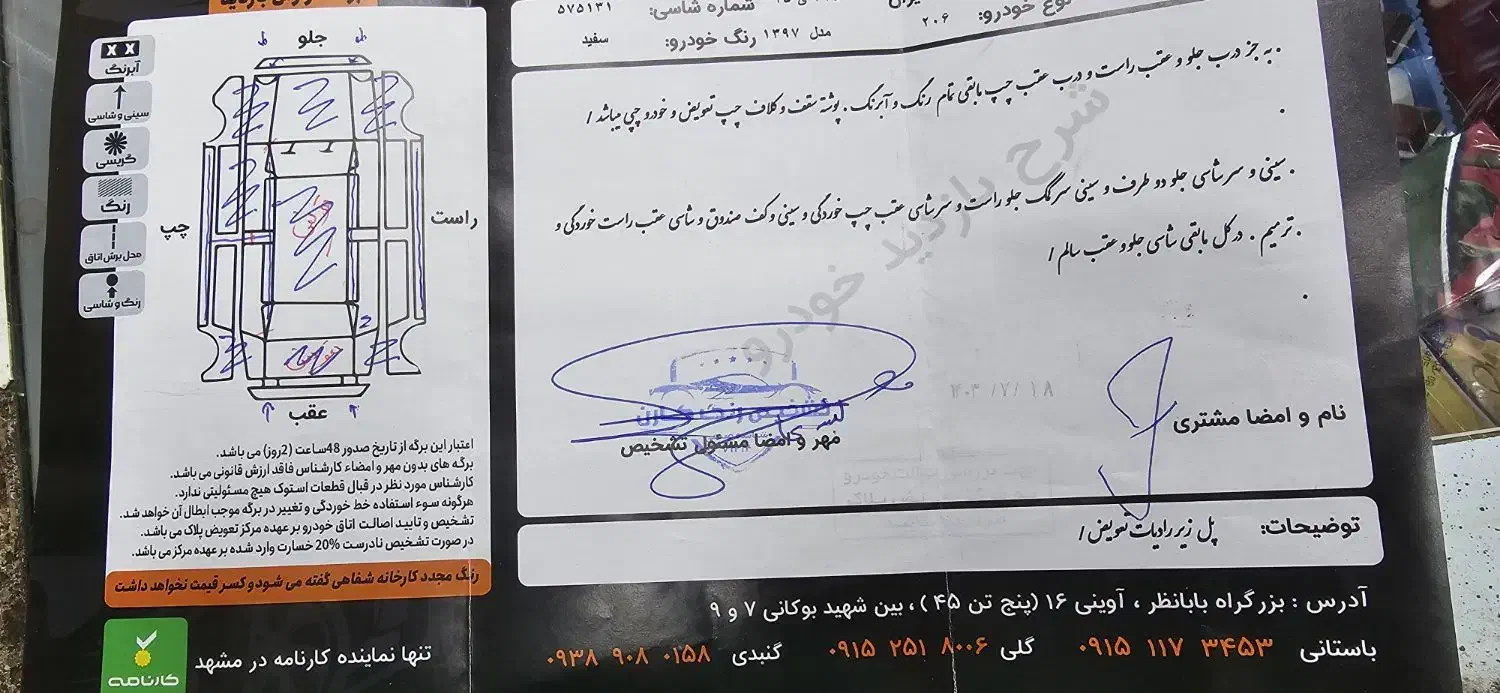 نوع خودرو:
۲۰۶
شماره شاسی:
۵۷۵۱۳۱
مدل ۱۳۹۷
رنگ خودرو:
سفید
. به جز درب جلو و عقب راست و درب عقب چپ مابقی تمام رنگ و آبرنگ . پوشته سقف و کلاف چپ تعویض و خودرو چپی میباشد /
. سینی و سرشاسی جلو دو طرف و سینی سرگمک جلو راست و سرشاسی عقب چپ خوردگی و سینی و کف صندوق و شاسی عقب راست خوردگی و
. ترمیم . درکل مابقی شاسی جلو و عقب سالم /
شرح بازدید خودرو
نام و امضا مشتری
مهر و امضا مسئول تشخیص
توضیحات:
پل زیر رادیات تعویض /
آدرس : بزرگراه بابانظر ، آوینی ۱۶ (پنج تن ۴۵ ) ، بین شهید بوکانی ۷ و ۹
باستانی ۳۴۵۳ ۱۱۷ ۰۹۱۵
گلی ۸۰۰۶ ۲۵۱ ۰۹۱۵
گنبدی ۰۱۵۸ ۹۰۸ ۰۹۳۸
جلو
راست
چپ
عقب
آبرنگ
سینی و شاسی
گریسی
رنگ
محل برش اتاق
رنگ و شاسی
اعتبار این برگه از تاریخ صدور 48ساعت (2روز) می باشد.
برگه های بدون مهر و امضاء کارشناس فاقد ارزش قانونی می باشد.
کارشناس مورد نظر در قبال قطعات استوک هیچ مسئولیتی ندارد.
هرگونه سوء استفاده خط خوردگی و تغییر در برگه موجب ابطال آن خواهد شد.
تشخیص و تایید اصالت اتاق خودرو بر عهده مرکز تعویض پلاک می باشد.
در صورت تشخیص نادرست 20% خسارت وارد شده بر عهده مرکز می باشد.
رنگ مجدد کارخانه شفاهی گفته می شود و کسر قیمت نخواهد داشت
تنها نماینده کارنامه در مشهد
کارنامه